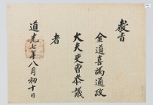 教旨
金道喜爲通政
大夫吏曹參議
者
道光七年八月初十日